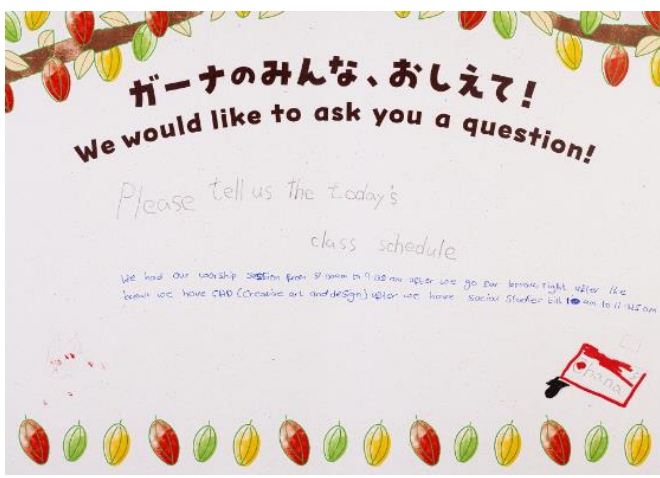 ガーナのみんな、おしえて!
We would like to ask you a question!
Please tell us the today's
class schedule
We had our worship session from 8:00am to 9:05am after we go for break, right after the
break we have CAD (Creative art and design) after we have Social Studies till 10am to 11:45am
Ghana